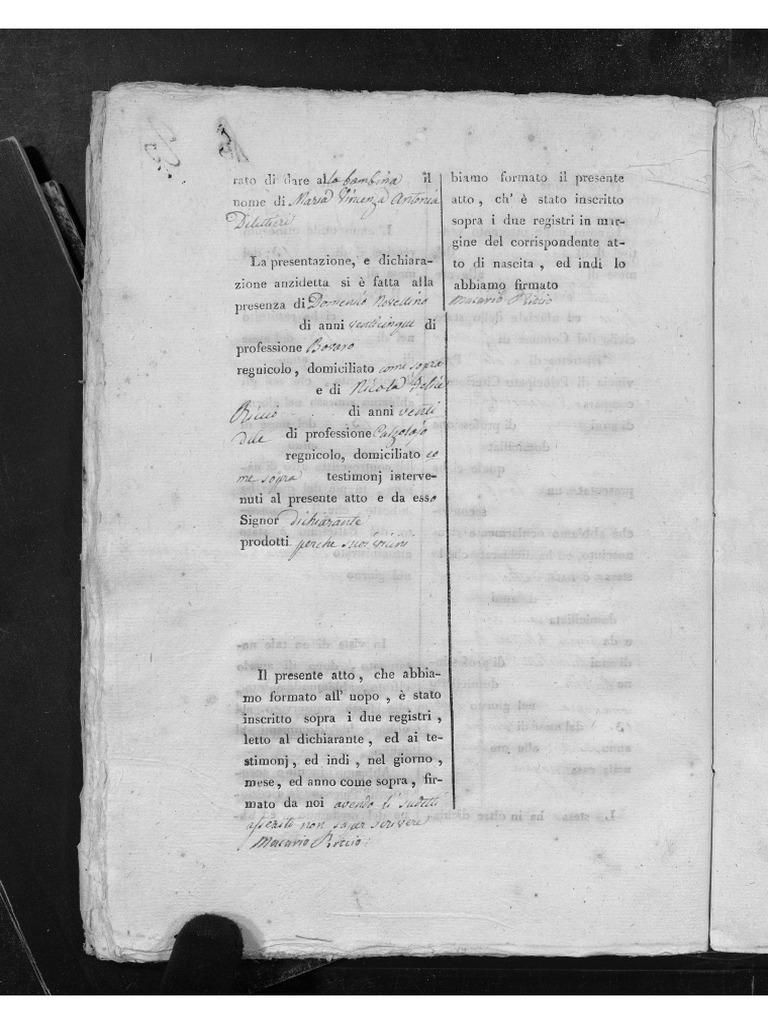 rato di dare alla bambina il
nome di Maria Vincenza Antonia
Dilettieri
La presentazione, e dichiara-
zione anzidetta si è fatta alla
presenza di Domenico Novellino
di anni venticinque di
professione Bovaro
regnicolo, domiciliato come sopra
e di Nicola Felice
Riccio di anni venti
di professione Calzolajo
regnicolo, domiciliato co
me sopra testimonj interve-
nuti al presente atto e da esso
Signor dichiarante
prodotti perche suoi vicini
Il presente atto, che abbia-
mo formato all' uopo, è stato
inscritto sopra i due registri,
letto al dichiarante, ed ai te-
stimonj, ed indi, nel giorno,
mese, ed anno come sopra, fir-
mato da noi avendo li sudetti
asserito non saper scrivere
Macario Riccio
biamo formato il presente
atto, ch' è stato inscritto
sopra i due registri in mar-
gine del corrispondente at-
to di nascita, ed indi lo
abbiamo firmato
Macario Riccio